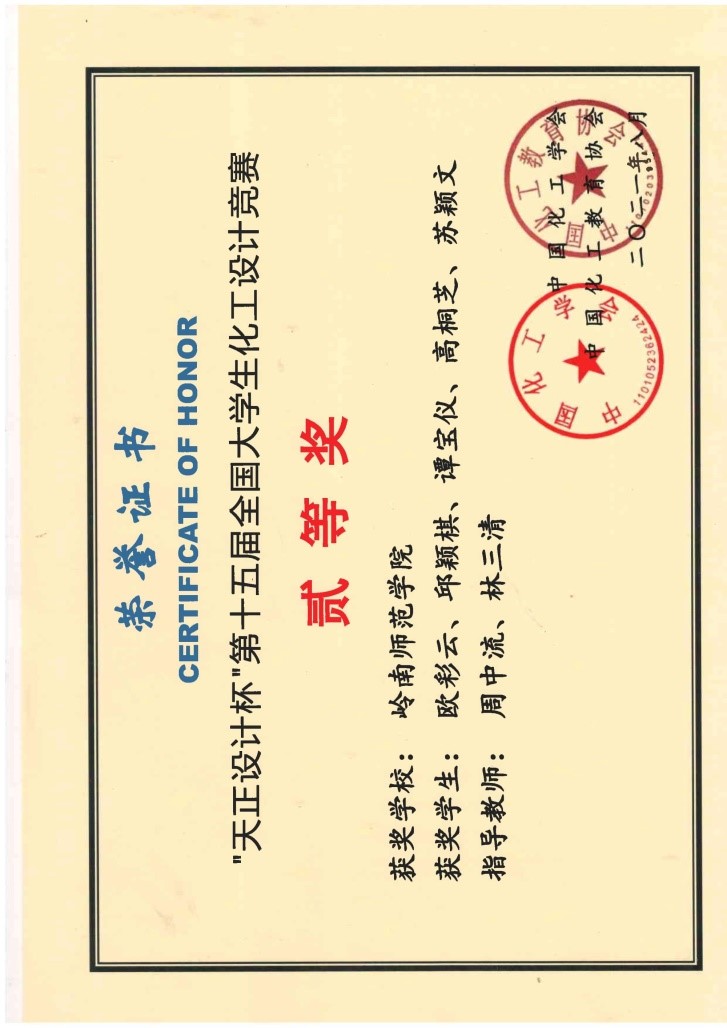 荣誉证书
CERTIFICATE OF HONOR
"天正设计杯"第十五届全国大学生化工设计竞赛
贰等奖
获奖学校： 岭南师范学院
获奖学生： 欧彩云、邱颖棋、谭宝仪、高桐芝、苏颖文
指导教师： 周中流、林三清
中国化工学会
中国化工教育协会
二〇二一年八月
中国化工学会
1101052362424
中国化工教育协会